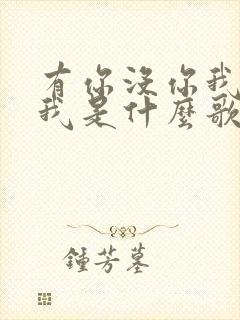 有你沒你我
我是什麼歌
鍾芳墓